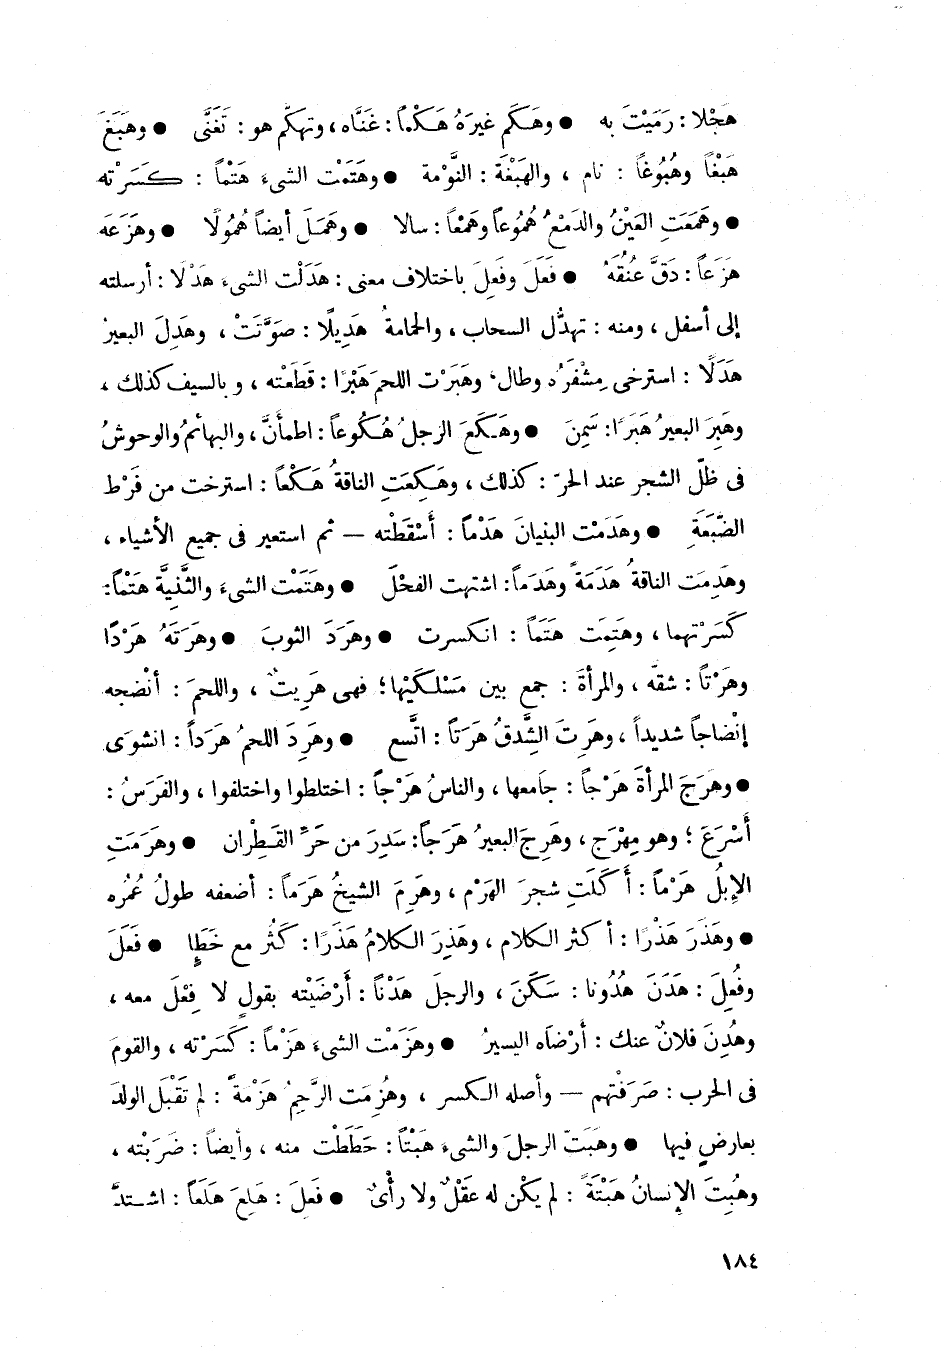 هَجْلا : رَمَيْتَ به ● وهَكَم غيرَهُ هَكْماً : غَنَّاه ، وتهكّم هو : تَغَنَّى ● وهَبَغَ
هَبْغًا وهُبُوغاً : نام ، والهَبْغَة : النَّوْمة ● وهَتَمْت الشىءَ هَتْماً : كسَرْته
● وهَمَعَتِ العَيْنُ والدَمْعُ هُمُوعاً وهَمْعًا : سالا ● وهَمَلَ أيضاً هُمُولًا ● وهَزَعَه
هَزَعاً : دَقَّ عُنُقَهُ ● فَعَلَ وفَعِلَ باختلاف معنى : هَدَلْت الشىءَ هَدْلًا : أرسلته
إلى أسفل ، ومنه : تهدُّل السحاب ، والحمامةُ هَدِيلًا : صوَّتَتْ ، وهَدِلَ البعيرُ
هَدَلًا : استرخى مِشْفَرُه وطال ، وهَبَرْت اللحمَ هَبْرًا : قَطَعْته ، وبالسيف كذلك ،
وهَبِرَ البعيرُ هَبَرًا : سَمِنَ ● وهَكَعَ الرجلُ هُكُوعاً : اطمأَنَّ ، والبهائمُ والوحوشُ
فى ظلّ الشجر عند الحرّ : كذلك ، وهَكِعَتِ الناقةُ هَكْعاً : استرخت من فَرْط
الضَّبَعَةِ ● وهَدَمْت البنيانَ هَدْماً : أَسْقَطْته — ثم استعير فى جميع الأشياء ،
وهَدِمَت الناقةُ هَدَمَةً وهَدَماً : اشتهت الفحْلَ ● وهَتَمْت الشىءَ والثَّنِيَّة هَتْماً :
كَسَرْتهما ، وهَتِمَت هَتَماً : انكسرت ● وهَرَدَ الثوبَ ● وهَرَتَهُ هَرْدًا
وهَرْتاً : شقه ، والمرأةَ : جمع بين مَسْلكَيْها ؛ فهى هَرِيتٌ ، واللحمَ : أنْضجه
إنْضاجاً شديداً ، وهَرِتَ الشِّدقُ هَرَتاً : اتَّسع ● وهَرِدَ اللحمُ هَرَداً : انشوَى
● وهَرَجَ المرأةَ هَرْجاً : جَامعها ، والناسُ هَرْجاً : اختلطوا واختلفوا ، والفَرَسُ :
أَسْرَعَ ؛ وهو مِهْرَج ، وهَرِجَ البعيرُ هَرَجاً : سَدِرَ من حَرِّ القَطِران ● وهَرَمَتِ
الإبلُ هَرْماً : أَكَلَتِ شجرَ الهَرْم ، وهَرِمَ الشيخُ هَرَماً : أضعفه طولُ عُمُره
● وهَذَرَ هَذْرًا : أكثر الكلام ، وهَذِرَ الكلامُ هَذَرًا : كَثُر مع خَطَإٍ ● فَعَلَ
وفُعِلَ : هَدَنَ هُدُونا : سَكَنَ ، والرجلَ هَدْناً : أَرْضَيْته بقولٍ لا فِعْلَ معه ،
وهُدِنَ فلانٌ عنك : أَرْضاَه اليسيرُ ● وهَزَمْت الشىءَ هَزْماً : كَسَرْته ، والقومَ
فى الحرب : صَرَفْتهم — وأصله الكسر ، وهُزِمَت الرَّحِمُ هَزْمةً : لم تَقْبَل الولدَ
بعارضٍ فيها ● وهَبَتّ الرجلَ والشىءَ هَبْتًا : حَطَطْت منه ، وأيضاً : ضَرَبْته ،
وهُبِتَ الإنسانُ هَبْتَةً : لم يكن له عَقْلٌ ولا رأْىٌ ● فَعِلَ : هَلِعَ هَلَعَاً : اشتدَّ
١٨٤